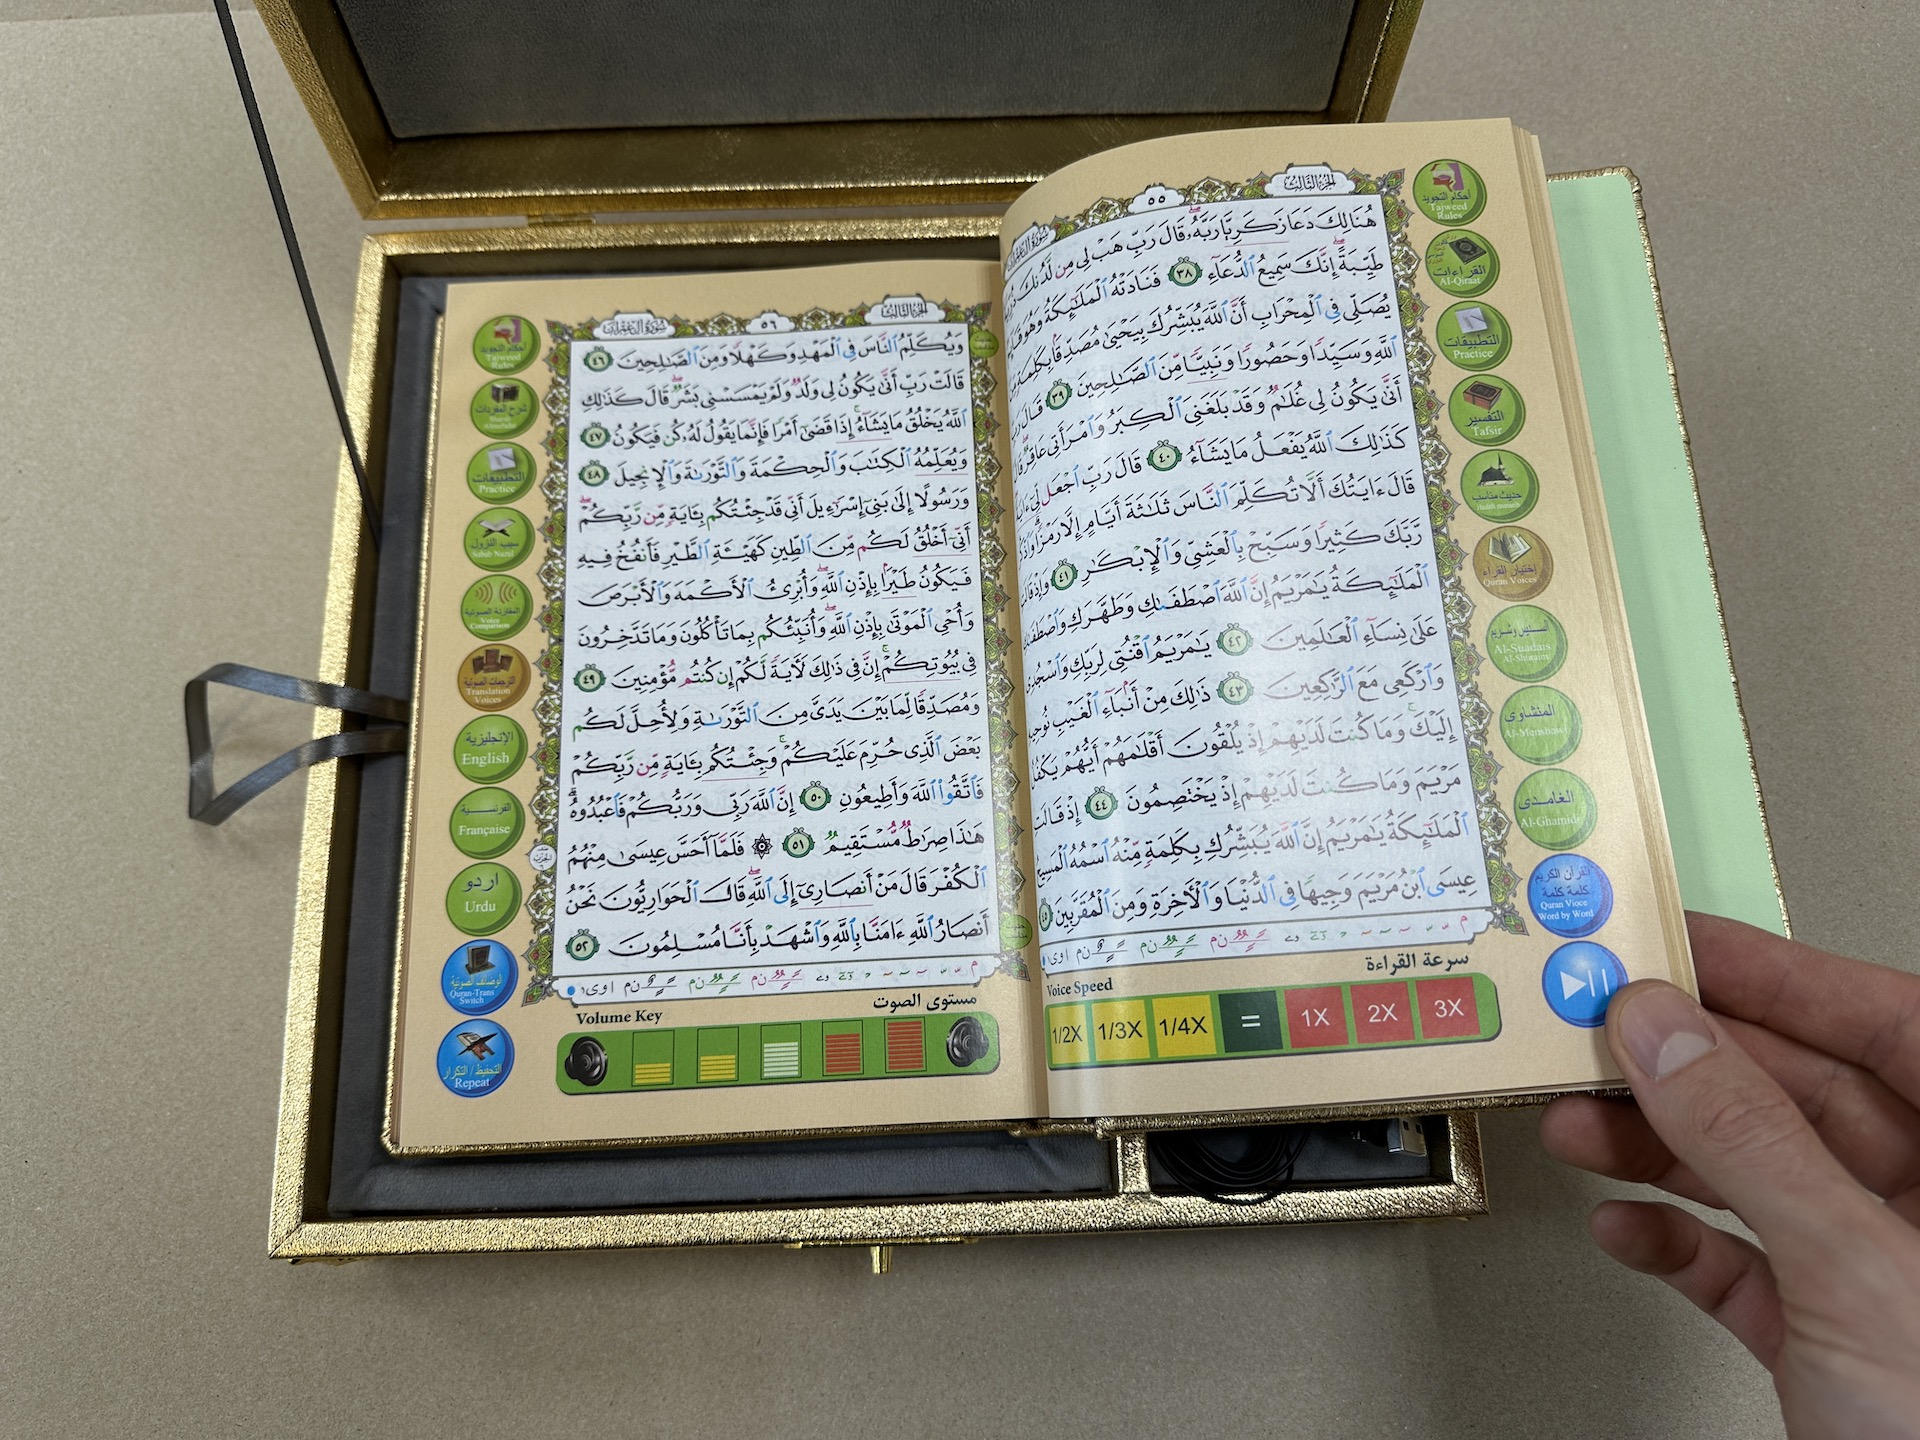 الجزء الثالث
٥٥
سورة آل عمران
هُنَالِكَ دَعَا زَكَرِيَّا رَبَّهُۥ قَالَ رَبِّ هَبْ لِى مِن لَّدُنكَ
طَيِّبَةً إِنَّكَ سَمِيعُ ٱلدُّعَآءِ ٣٨ فَنَادَتْهُ ٱلْمَلَـٰٓئِكَةُ وَهُوَ
يُصَلِّى فِى ٱلْمِحْرَابِ أَنَّ ٱللَّهَ يُبَشِّرُكَ بِيَحْيَىٰ مُصَدِّقًۢا بِكَلِمَةٍ
ٱللَّهِ وَسَيِّدًا وَحَصُورًا وَنَبِيًّا مِّنَ ٱلصَّـٰلِحِينَ ٣٩ قَالَ رَبِّ
أَنَّىٰ يَكُونُ لِى غُلَـٰمٌ وَقَدْ بَلَغَنِىَ ٱلْكِبَرُ وَٱمْرَأَتِى عَاقِرٌ
كَذَٰلِكَ ٱللَّهُ يَفْعَلُ مَا يَشَآءُ ٤٠ قَالَ رَبِّ ٱجْعَل لِّىٓ
قَالَ ءَايَتُكَ أَلَّا تُكَلِّمَ ٱلنَّاسَ ثَلَـٰثَةَ أَيَّامٍ إِلَّا رَمْزًا
رَّبَّكَ كَثِيرًا وَسَبِّحْ بِٱلْعَشِىِّ وَٱلْإِبْكَـٰرِ ٤١
ٱلْمَلَـٰٓئِكَةُ يَـٰمَرْيَمُ إِنَّ ٱللَّهَ ٱصْطَفَىٰكِ وَطَهَّرَكِ
عَلَىٰ نِسَآءِ ٱلْعَـٰلَمِينَ ٤٢ يَـٰمَرْيَمُ ٱقْنُتِى لِرَبِّكِ وَٱسْجُدِى
وَٱرْكَعِى مَعَ ٱلرَّٰكِعِينَ ٤٣ ذَٰلِكَ مِنْ أَنۢبَآءِ ٱلْغَيْبِ
إِلَيْكَ وَمَا كُنتَ لَدَيْهِمْ إِذْ يُلْقُونَ أَقْلَـٰمَهُمْ أَيُّهُمْ
مَرْيَمَ وَمَا كُنتَ لَدَيْهِمْ إِذْ يَخْتَصِمُونَ ٤٤ إِذْ قَالَتِ
ٱلْمَلَـٰٓئِكَةُ يَـٰمَرْيَمُ إِنَّ ٱللَّهَ يُبَشِّرُكِ بِكَلِمَةٍ مِّنْهُ ٱسْمُهُ ٱلْمَسِيحُ
عِيسَى ٱبْنُ مَرْيَمَ وَجِيهًا فِى ٱلدُّنْيَا وَٱلْـَٔاخِرَةِ وَمِنَ ٱلْمُقَرَّبِينَ ٤٥
سرعة القراءة
Voice Speed
1/2X 1/3X 1/4X = 1X 2X 3X
أحكام التجويد
Tajweed Rules
القراءات
Al-Qiraat
التطبيقات
Practice
التفسير
Tafsir
حديث مناسب
إختيار القراء
Quran Voices
Al-Suadais
Al-Shuraim
المنشاوى
Al-Menshawi
الغامدى
Al-Ghamidi
القرآن الكريم
كلمة كلمة
Quran Vioce
Word by Word
الجزء الثالث
٥٦
سورة آل عمران
وَيُكَلِّمُ ٱلنَّاسَ فِى ٱلْمَهْدِ وَكَهْلًا وَمِنَ ٱلصَّـٰلِحِينَ ٤٦
قَالَتْ رَبِّ أَنَّىٰ يَكُونُ لِى وَلَدٌ وَلَمْ يَمْسَسْنِى بَشَرٌ قَالَ كَذَٰلِكِ
ٱللَّهُ يَخْلُقُ مَا يَشَآءُ إِذَا قَضَىٰٓ أَمْرًا فَإِنَّمَا يَقُولُ لَهُۥ كُن فَيَكُونُ ٤٧
وَيُعَلِّمُهُ ٱلْكِتَـٰبَ وَٱلْحِكْمَةَ وَٱلتَّوْرَىٰةَ وَٱلْإِنجِيلَ ٤٨
وَرَسُولًا إِلَىٰ بَنِىٓ إِسْرَٰٓءِيلَ أَنِّى قَدْ جِئْتُكُم بِـَٔايَةٍ مِّن رَّبِّكُمْ
أَنِّىٓ أَخْلُقُ لَكُم مِّنَ ٱلطِّينِ كَهَيْـَٔةِ ٱلطَّيْرِ فَأَنفُخُ فِيهِ
فَيَكُونُ طَيْرًۢا بِإِذْنِ ٱللَّهِ وَأُبْرِئُ ٱلْأَكْمَهَ وَٱلْأَبْرَصَ
وَأُحْىِ ٱلْمَوْتَىٰ بِإِذْنِ ٱللَّهِ وَأُنَبِّئُكُم بِمَا تَأْكُلُونَ وَمَا تَدَّخِرُونَ
فِى بُيُوتِكُمْ إِنَّ فِى ذَٰلِكَ لَـَٔايَةً لَّكُمْ إِن كُنتُم مُّؤْمِنِينَ ٤٩
وَمُصَدِّقًا لِّمَا بَيْنَ يَدَىَّ مِنَ ٱلتَّوْرَىٰةِ وَلِأُحِلَّ لَكُم
بَعْضَ ٱلَّذِى حُرِّمَ عَلَيْكُمْ وَجِئْتُكُم بِـَٔايَةٍ مِّن رَّبِّكُمْ
فَٱتَّقُوا۟ ٱللَّهَ وَأَطِيعُونِ ٥٠ إِنَّ ٱللَّهَ رَبِّى وَرَبُّكُمْ فَٱعْبُدُوهُ
هَـٰذَا صِرَٰطٌ مُّسْتَقِيمٌ ٥١ ۞ فَلَمَّآ أَحَسَّ عِيسَىٰ مِنْهُمُ
ٱلْكُفْرَ قَالَ مَنْ أَنصَارِىٓ إِلَى ٱللَّهِ قَالَ ٱلْحَوَارِيُّونَ نَحْنُ
أَنصَارُ ٱللَّهِ ءَامَنَّا بِٱللَّهِ وَٱشْهَدْ بِأَنَّا مُسْلِمُونَ ٥٢
مستوى الصوت
Volume Key
أحكام التجويد
Tajweed Rules
شرح المفردات
التطبيقات
Practice
سبب النزول
Sabab Nuzul
المقارنة الصوتية
Voice Comparison
الترجمات الصوتية
Translation Voices
الإنجليزية
English
الفرنسية
Française
اردو
Urdu
Quran-Trans
Switch
التحفيظ / التكرار
Repeat